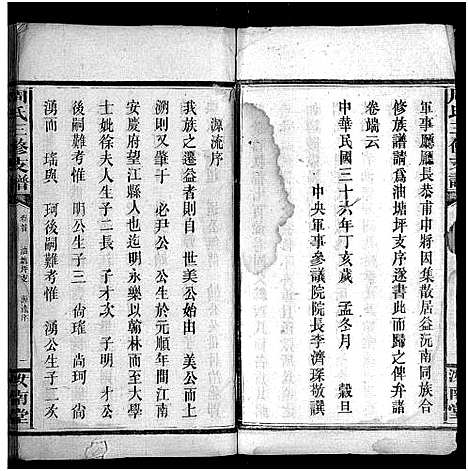 軍事廳廳長恭甫中將因集散居益沅南同族合
修族譜請爲油塘坪支序遂書此而歸之俾弁諸
卷端云
中華民國三十六年丁亥歲 孟冬月 穀旦
中央軍事參議院院長李濟琛敬譔
源流序
我族之遷益者則自 世美公始由 美公而上
溯則又肇于 必尹公公於元順年間江南
安慶府望江縣人也迄明永樂以翰林而至大學
士妣徐夫人生子二長 子才次 子明 才公
後嗣難考惟 明公生子三 尚瓘 尚珂 尚
湧而 瑤與 珂後嗣難考惟 湧公生子二次
周氏三修支譜
卷首
源流序
一
汝南堂